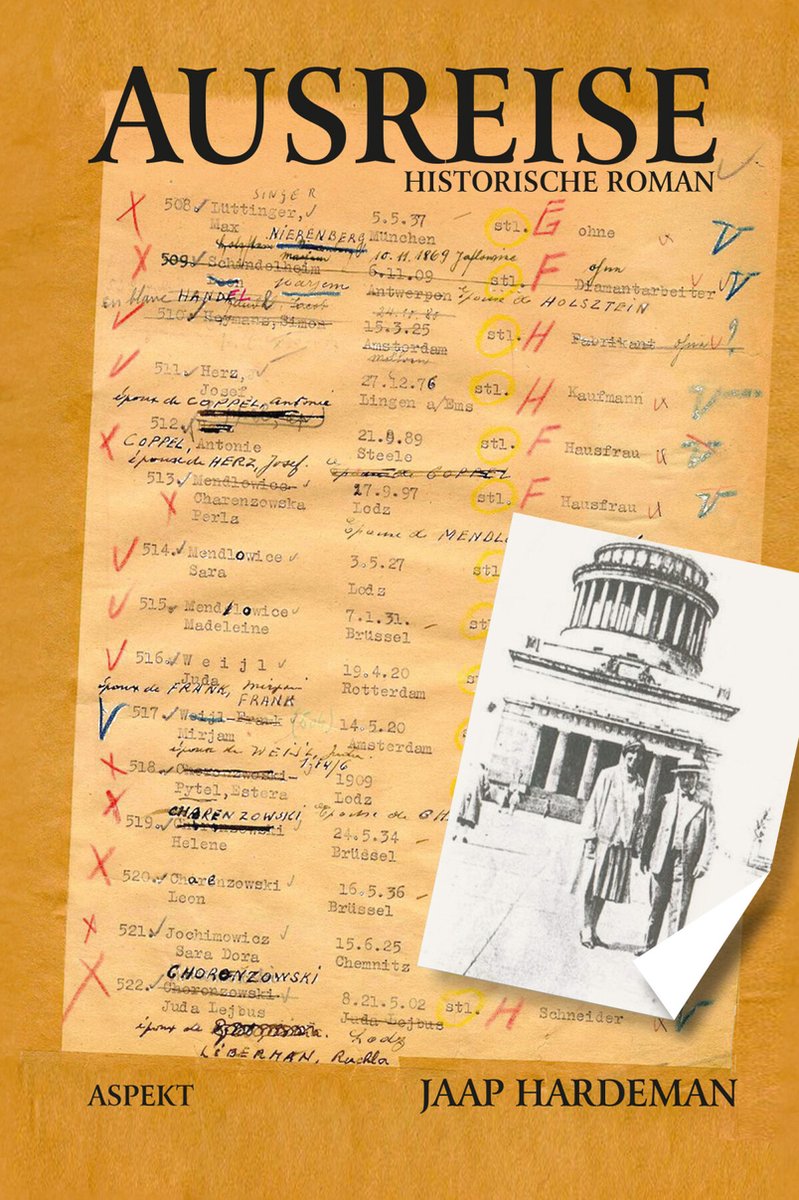 AUSREISE
HISTORISCHE ROMAN
SINGER
508. Lüttinger, 5.5.37 stl. G ohne
Max München
NIERENBERG 10.11.1869
509. Schandelheim 6.11.09 stl. F Diamantarbeiter
Antwerpen épouse de HOLSZTEIN
en blanc HANDEL 24.11.21
510. Heymans, Simon 15.3.25 stl. H Fabrikant ?
Amsterdam
511. Herz, 27.12.76 stl. H Kaufmann
Josef Lingen a/Ems
époux de COPPEL, Antonie
512. 21.8.89 stl. F Hausfrau
COPPEL, Antonie Steele
épouse de HERZ, Josef. COPPEL
513. Mendlowice 17.9.97 stl. F Hausfrau
Charenzowska Lodz
Perlz
Epouse de MENDL
514. Mendlowice 3.5.27 stl
Sara Lodz
515. Mendlowice 7.1.31. st
Madeleine Brüssel
516. Weijl 19.4.20
Juda Rotterdam
époux de FRANK, Mirjam
FRANK
517. Weijl-Frank 14.5.20
Mirjam Amsterdam
épouse de WEIJL, Juda
518. 1909
Pytel, Estera Lodz
CHARENZOWSKI épouse de CH
519. 24.5.34
Helene Brüssel
520. Charenzowski 16.5.36
Leon Brüssel
521. Jochimowicz 15.6.25
Sara Dora Chemnitz
CHORONZOWSKI
522. Choronzowski 8.21.5.02 stl. H Schneider
Juda Lejbus Juda Lejbus
époux de Lodz
LIBERMAN, Ruchla
ASPEKT
JAAP HARDEMAN